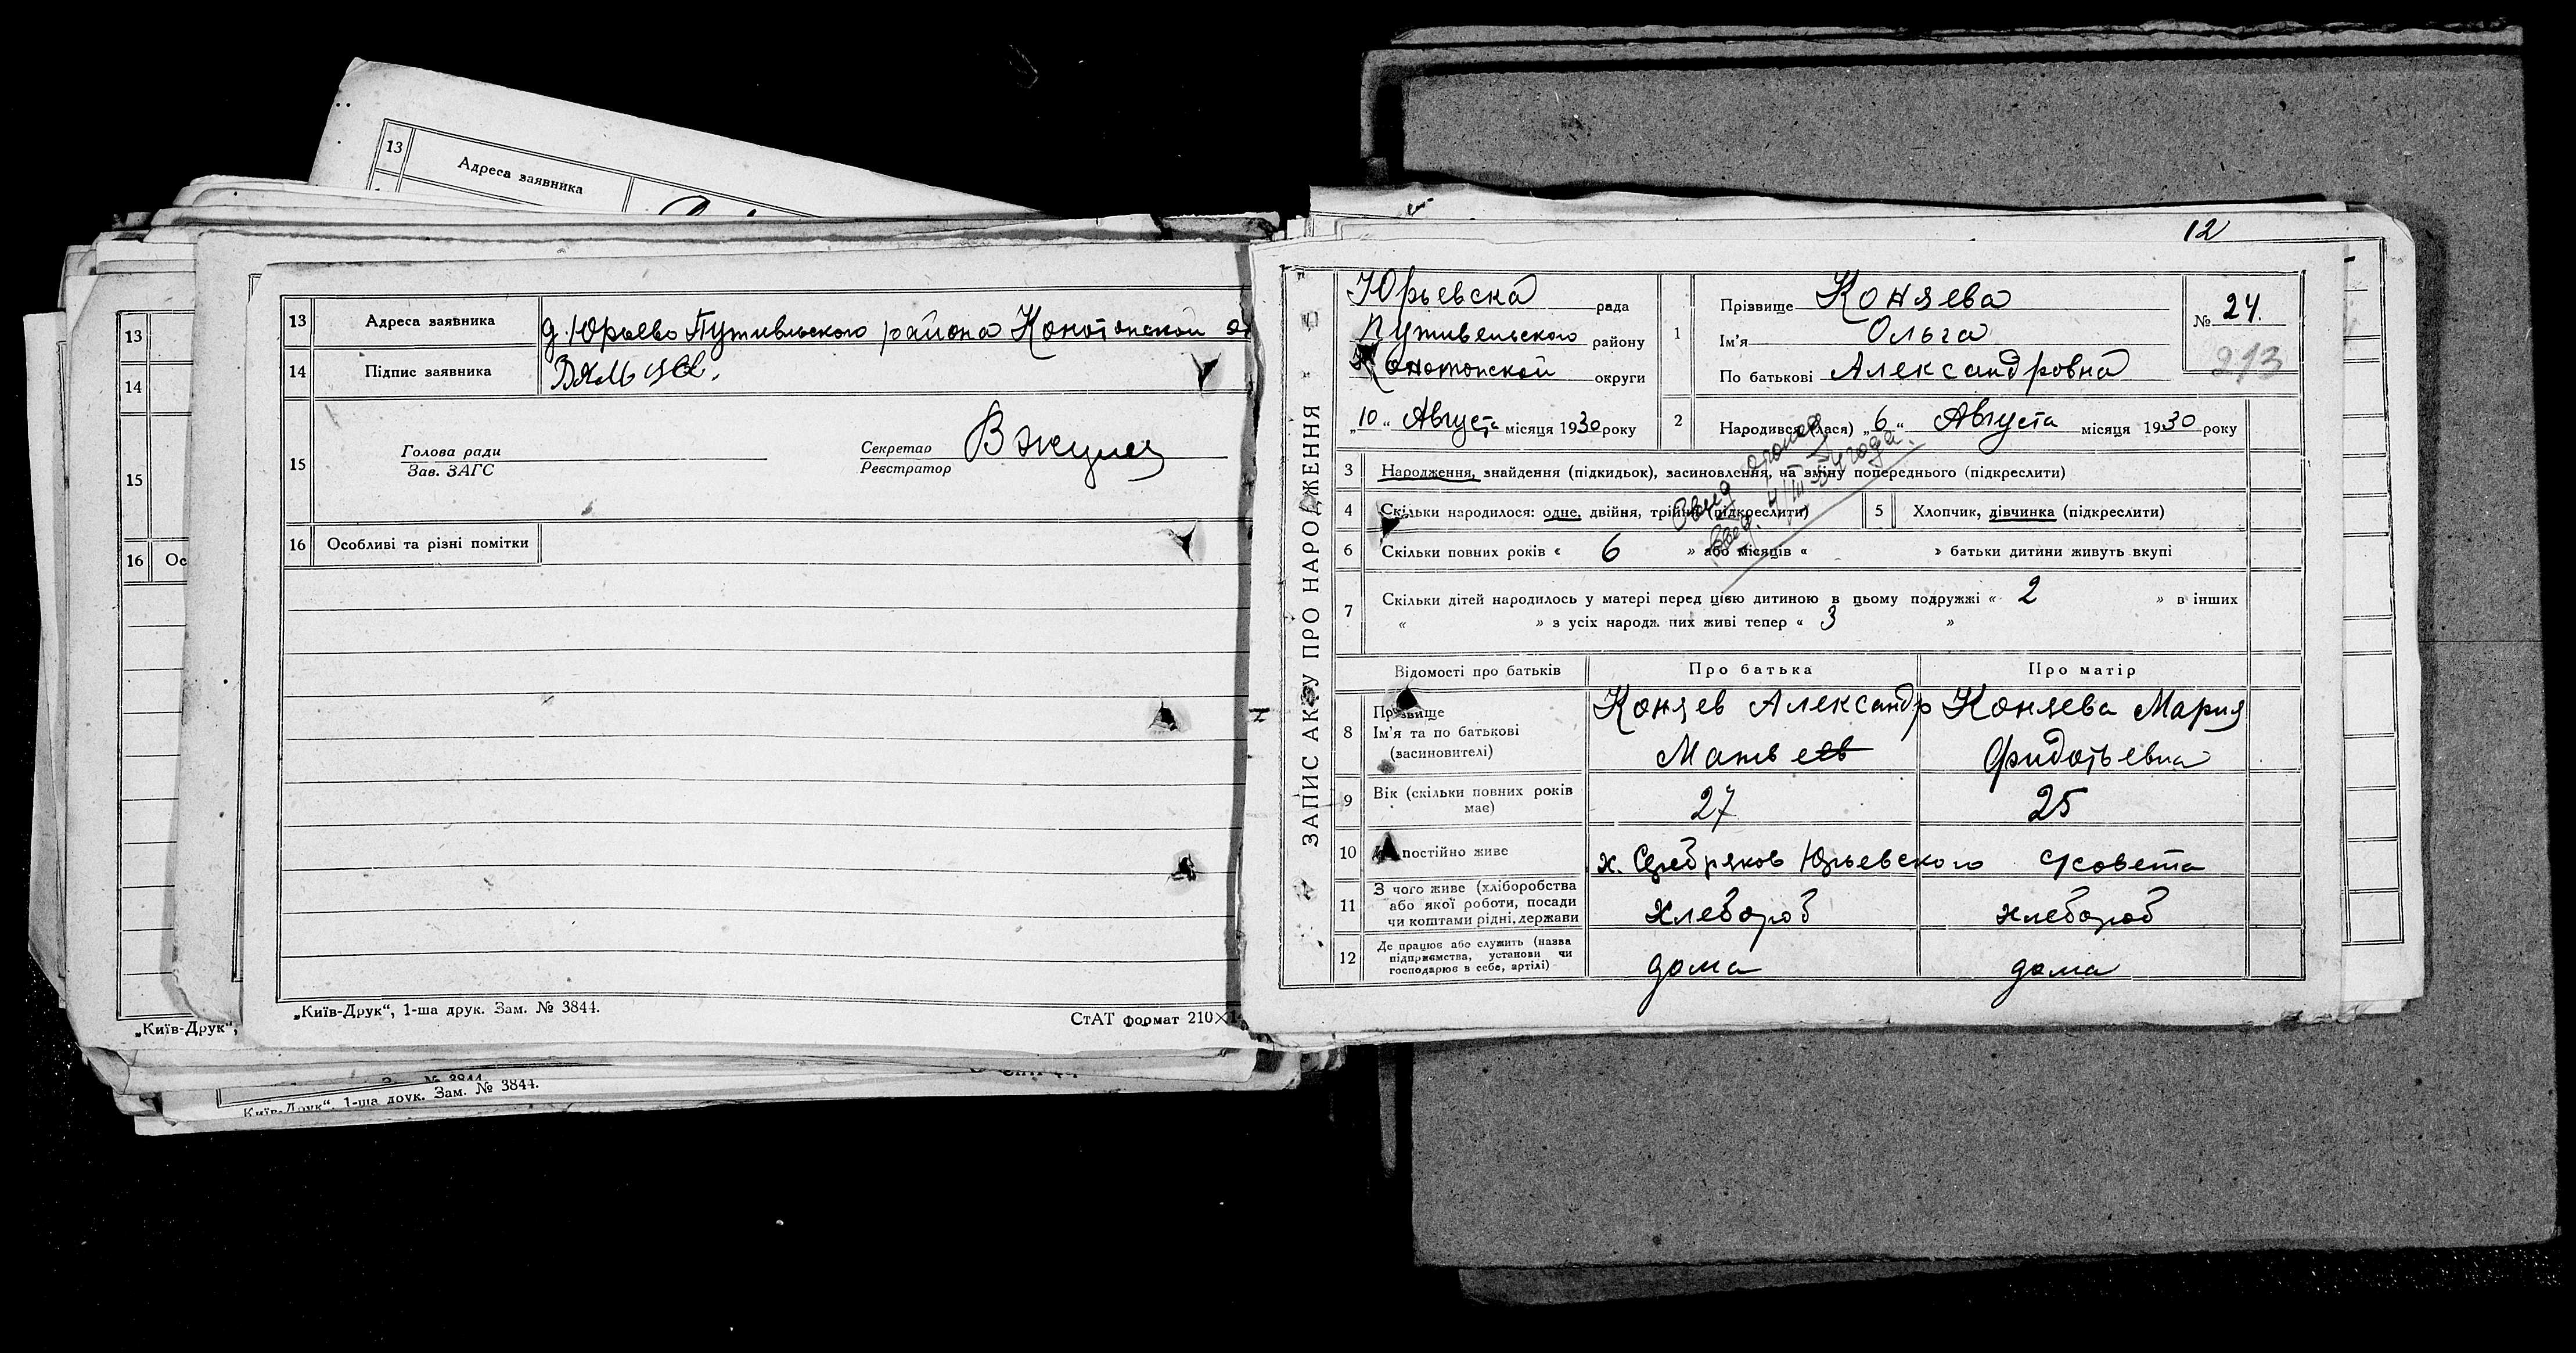 13 Адреса заявника
13 Адреса заявника д. Юрьево Путивльского района Конотопской
14 Підпис заявника
15 Голова ради
Зав. ЗАГС
Секретар
Реєстратор
16 Особливі та різні помітки
„Київ-Друк“, 1-ша друк. Зам. № 3844.
СтАТ формат 210×
13
14
15
16 Ос
„Київ-Друк“,
Київ-Друк“, 1-ша друк. Зам. № 3844.
12
ЗАПИС АКТУ ПРО НАРОДЖЕННЯ
Юрьевска рада
Путивельского району
Конотопской округи
„10“ Августа місяця 1930 року
1 Прізвище Коняева
Ім'я Ольга
По батькові Александровна
№ 24.
213
2 Народився (лася) „6“ Августа місяця 1930 року
3 Народження, знайдення (підкидьок), засиновлення, на зміну попереднього (підкреслити)
4 Скільки народилося: одне, двійня, трійня (підкреслити)
5 Хлопчик, дівчинка (підкреслити)
6 Скільки повних років « 6 » або місяців « » батьки дитини живуть вкупі
7 Скільки дітей народилось у матері перед цією дитиною в цьому подружжі « 2 » в інших
« » з усіх народж. них живі тепер « 3 »
Відомості про батьків Про батька Про матір
8 Прізвище
Ім'я та по батькові
(засиновителі)
Коняев Александр
Матвеев
Коняева Мария
Фидотьевна
9 Вік (скільки повних років має) 27 25
10 постійно живе х. Серебряков Юрьевского с/совета
11 З чого живе (хліборобства
або якої роботи, посади
чи коштами рідні, держави
хлебороб хлебороб
12 Де працює або служить (назва
підприємства, установи чи
господарює в себе, артілі)
дома дома